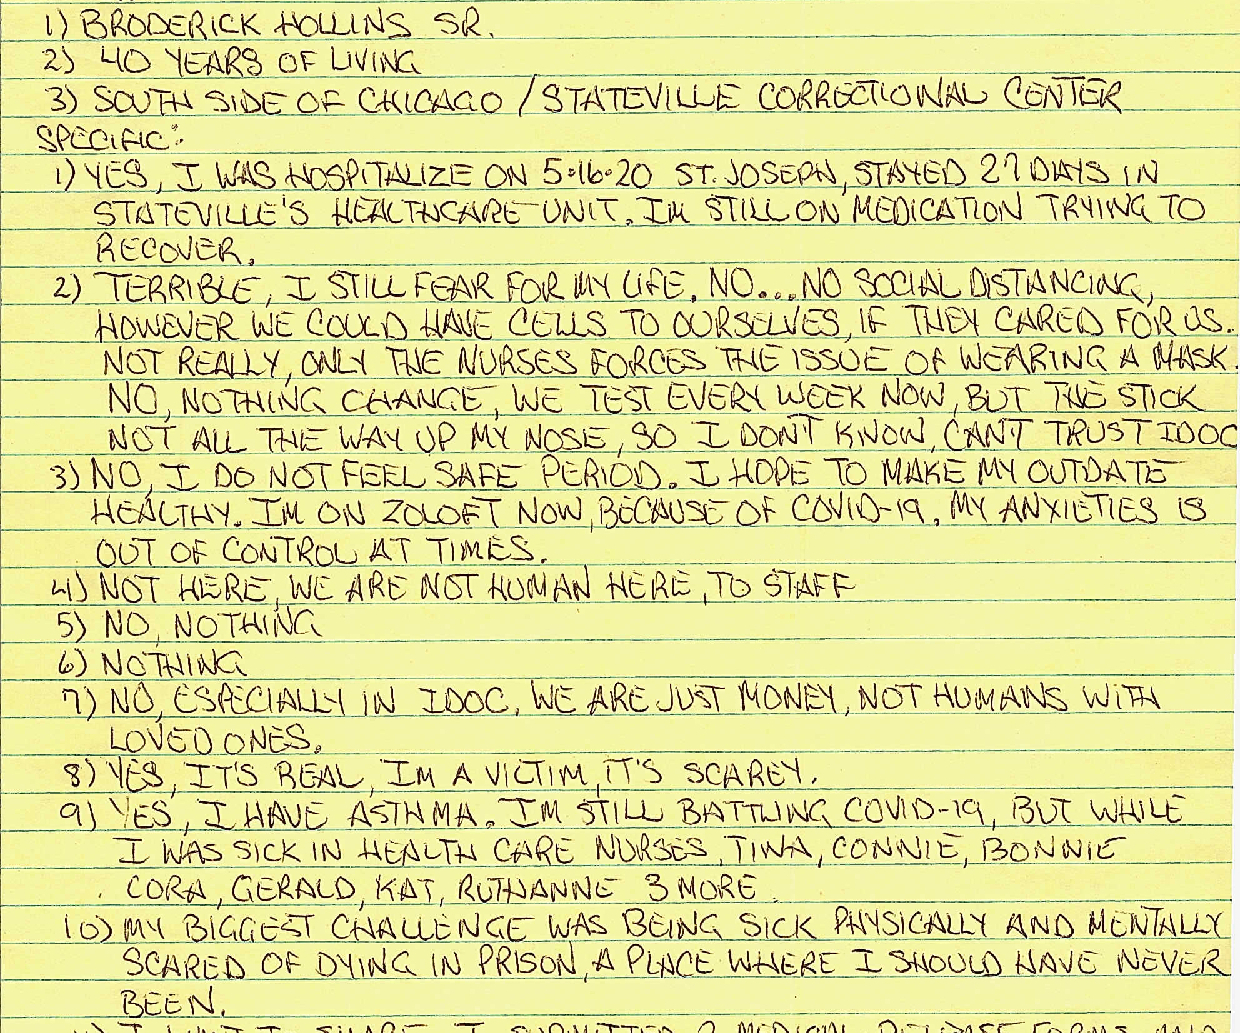 1) BRODERICK HOLLINS SR.
2) 40 YEARS OF LIVING
3) SOUTH SIDE OF CHICAGO / STATEVILLE CORRECTIONAL CENTER
SPECIFIC:
1) YES, I WAS HOSPITALIZE ON 5.16.20 ST. JOSEPH, STAYED 27 DAYS IN
STATEVILLE'S HEALTHCARE UNIT. IM STILL ON MEDICATION TRYING TO
RECOVER.
2) TERRIBLE, I STILL FEAR FOR MY LIFE. NO...NO SOCIAL DISTANCING,
HOWEVER WE COULD HAVE CELLS TO OURSELVES, IF THEY CARED FOR US.
NOT REALLY, ONLY THE NURSES FORCES THE ISSUE OF WEARING A MASK.
NO, NOTHING CHANGE, WE TEST EVERY WEEK NOW, BUT THE STICK
NOT ALL THE WAY UP MY NOSE, SO I DON'T KNOW, CAN'T TRUST IDOC
3) NO, I DO NOT FEEL SAFE PERIOD. I HOPE TO MAKE MY OUTDATE
HEALTHY. IM ON ZOLOFT NOW, BECAUSE OF COVID-19. MY ANXIETIES IS
OUT OF CONTROL AT TIMES.
4) NOT HERE, WE ARE NOT HUMAN HERE, TO STAFF
5) NO, NOTHING
6) NOTHING
7) NO, ESPECIALLY IN IDOC, WE ARE JUST MONEY, NOT HUMANS WITH
LOVED ONES.
8) YES, IT'S REAL, IM A VICTIM, IT'S SCAREY.
9) YES, I HAVE ASTHMA. IM STILL BATTLING COVID-19, BUT WHILE
I WAS SICK IN HEALTH CARE NURSES, TINA, CONNIE, BONNIE
CORA, GERALD, KAT, RUTHANNE 3 MORE.
10) MY BIGGEST CHALLENGE WAS BEING SICK PHYSICALLY AND MENTALLY
SCARED OF DYING IN PRISON, A PLACE WHERE I SHOULD HAVE NEVER
BEEN.
I SUBMITTED 2 MEDICAL RELEASE FORMS